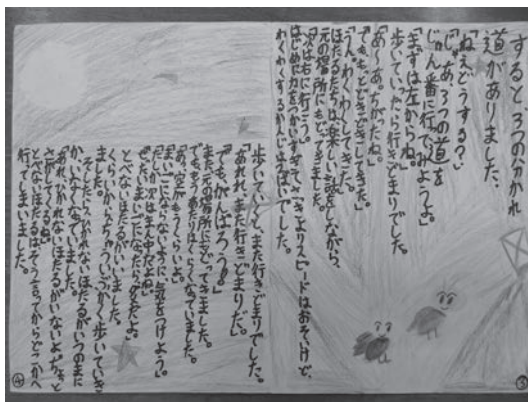 すると3つの分かれ
道がありました。
「ねえどうする?」
「じゃあ、3つの道を
じゅん番に行ってみようよ。」
「まずは左からね。」
歩いていったら行きどまりでした。
「あ〜あ。ちがったね。」
「でも、もっとどきどきしてきた。」
「うん。わくわくしてきた。」
ほたるたちは楽しい話をしながら、
元の場所にもどってきました。
「次は右に行こう。」
はじめに力をつかいすぎて、さっきよりスピードはおそいけど、
わくわくするかんじはいっぱいでした。
③
歩いていくと、また行きどまりでした。
「あれれ、また行きどまりだ。」
「でも、がんばろう。」
また元の場所にもどってきました。
でも、もうあたりはくらくなっていました。
「あ。空がもうくらいよ。」
「まいごにならないように気をつけよう。」
「じゃあ、次はまん中だよね。」
「ぜったいまいごになったらダメだよ。」
とべないほたるがいいました。
くらいからちゅういぶかく歩いていき
ました。
そのとき、ひかれないほたるがいつのまに
か、いなくなっていました。
「あれ、ひかれないほたるがいないよ。ちょっと
さがしてくるね。」
とべないほたるはそう言ってからどこかへ
行ってしまいました。
④